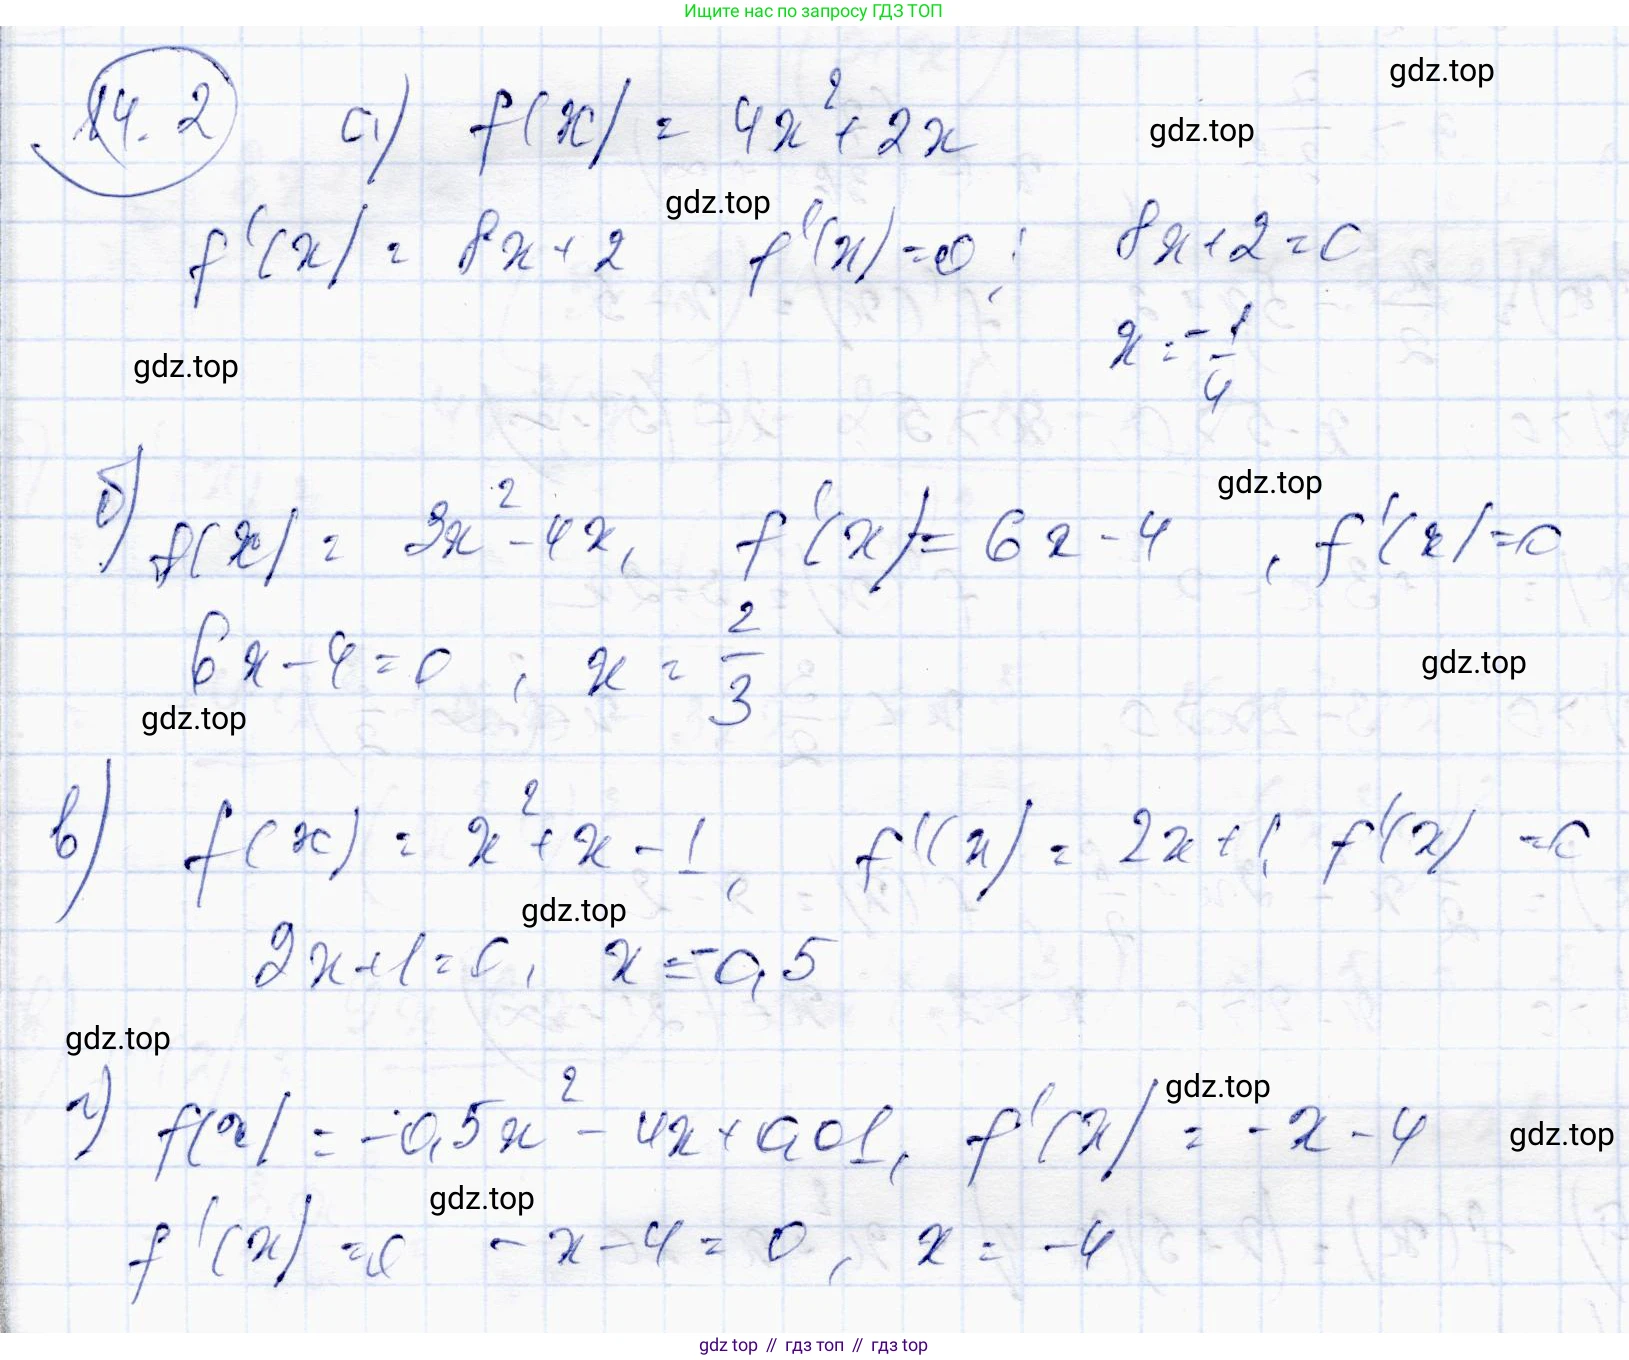 Ищите нас по запросу ГДЗ ТОП
gdz.top
14.2 а) f(x) = 4x²+2x gdz.top
gdz.top
f'(x) = 8x+2 f'(x)=0; 8x+2=0
gdz.top x=-1/4
gdz.top
б) f(x) = 3x²-4x, f'(x)=6x-4, f'(x)=0
6x-4=0, x=2/3 gdz.top
gdz.top
в) f(x) = x²+x-1, f'(x) = 2x+1, f'(x)=0
gdz.top
2x+1=0, x=-0,5
gdz.top
gdz.top
г) f(x)=-0,5x²-4x+0,01, f'(x) = -x-4 gdz.top
gdz.top
f'(x)=0 -x-4=0, x=-4
gdz top // гдз топ // gdz top